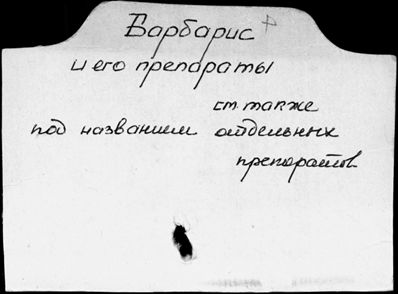 Барбарис +
и его препараты
см также
под названием отдельных
препаратов